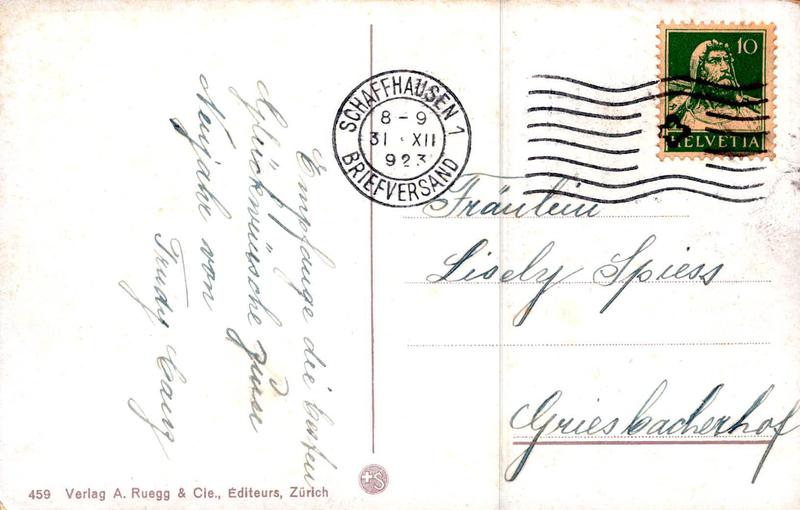 Empfange die besten
Glückwünsche zum
Neujahr von
Trudy
SCHAFFHAUSEN 1
8-9
31. XII
923
BRIEFVERSAND
10
HELVETIA
Fräulein
Lisely Spiess
Griesbacherhof
459 Verlag A. Ruegg & Cie., Éditeurs, Zürich
+S